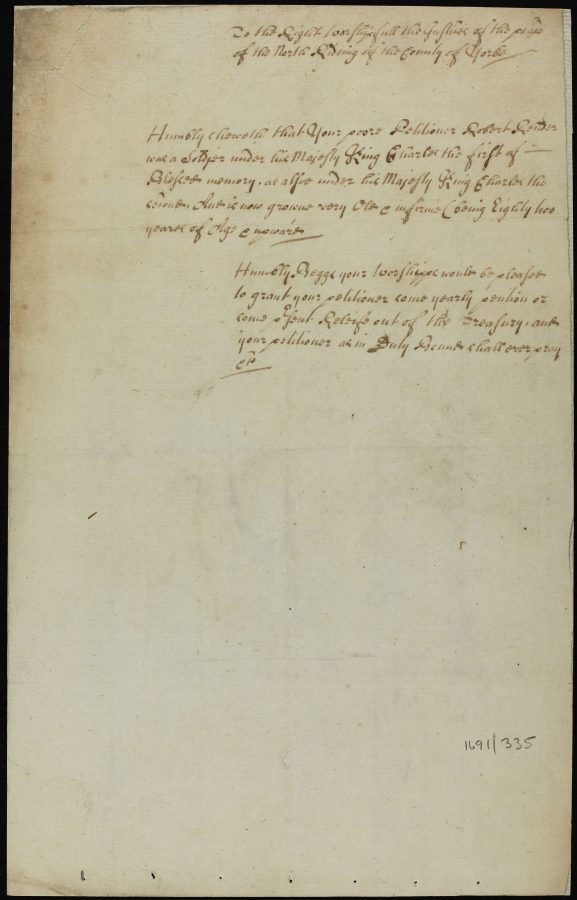 To the Right Worshipfull the Justices of the peace
of the North Rideing of the County of Yorke
Humbly sheweth that Your poore Petitioner Robert
was a Soldjer under his Majesty King Charles the first of
Blessed memory, as also under his Majesty King Charles the
second, And is now growne very Old & infirme (being Eighty two
yeares of Age & upward
Humbly Beggs your Worshipps would be pleased
to grant your petitioner some yearly pention or
some p'sent Releife out of the Treasury, and
your petitioner as in Duty Bound shall ever pray
&c
1691/335